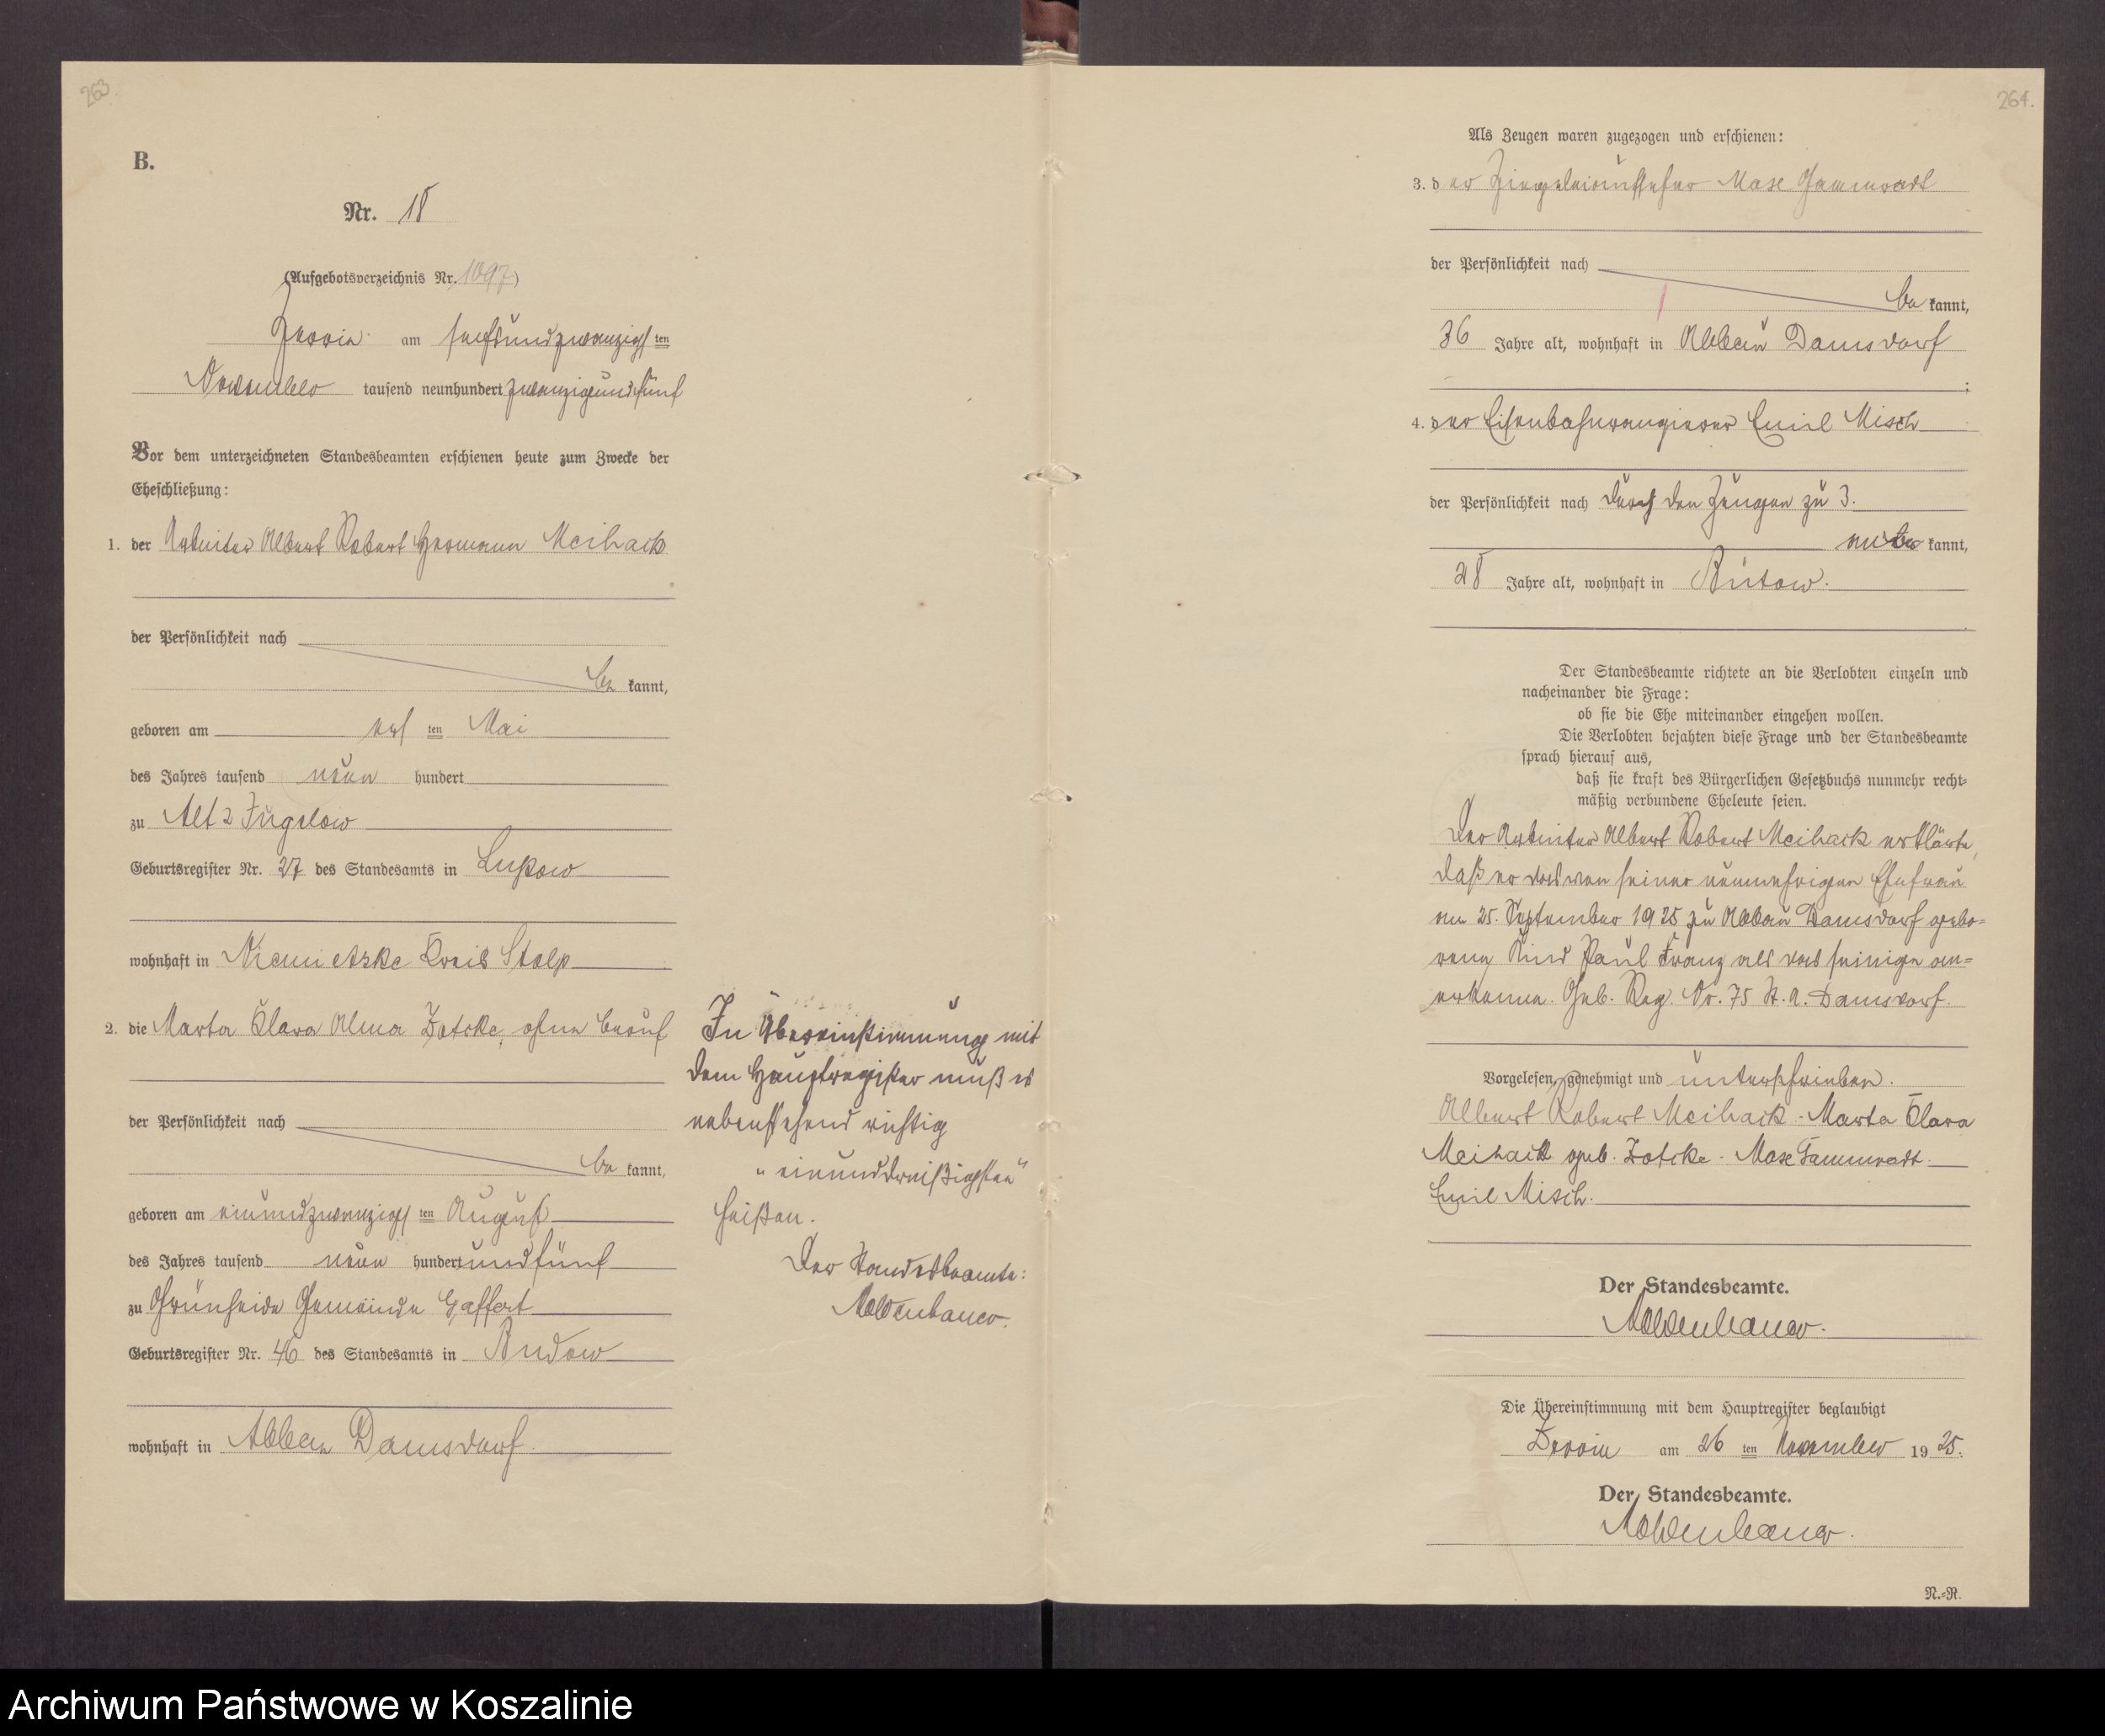 263
B.
Nr. 18
(Aufgebotsverzeichnis Nr. 1097)
am sechsundzwanzigsten
November tausend neunhundert zwanzigundfünf
Vor dem unterzeichneten Standesbeamten erschienen heute zum Zwecke der
Eheschließung:
1. der Arbeiter Albert Robert Hermann Meihack
der Persönlichkeit nach
be kannt,
geboren am ersten Mai
des Jahres tausend neun hundert
zu Alt Jugelow
Geburtsregister Nr. 27 des Standesamts in Lupow
wohnhaft in Niemietzke Kreis Stolp
2. die Marta Klara Alma ohne Beruf
der Persönlichkeit nach
be kannt,
geboren am einundzwanzigsten August
des Jahres tausend neun hundertundfünf
zu Grünheide Gemeinde Gaffert
Geburtsregister Nr. 46 des Standesamts in Budow
wohnhaft in Abbau Damsdorf.
In Übereinstimmung mit
dem Hauptregister muß es
nebenstehend richtig
„einunddreißigsten"
heißen.
Der Standesbeamte:
264.
Als Zeugen waren zugezogen und erschienen:
3. der Max
der Persönlichkeit nach
be kannt,
36 Jahre alt, wohnhaft in Abbau Damsdorf
;
4. der Eisenbahnrangierer Emil Misch
der Persönlichkeit nach durch den Zeugen zu 3.
kannt,
28 Jahre alt, wohnhaft in Bütow.
Der Standesbeamte richtete an die Verlobten einzeln und
nacheinander die Frage:
ob sie die Ehe miteinander eingehen wollen.
Die Verlobten bejahten diese Frage und der Standesbeamte
sprach hierauf aus,
daß sie kraft des Bürgerlichen Gesetzbuchs nunmehr recht-
mäßig verbundene Eheleute seien.
Der Arbeiter Albert Robert Meihack erklärte,
daß er das von seiner nunmehrigen Ehefrau
am 25. September 1925 zu Abbau Damsdorf gebo-
rene Kind Paul Franz als das seinige an-
erkenne. Geb. Reg. Nr. 75 St. A. Damsdorf.
Vorgelesen, genehmigt und unterschrieben.
Albert Robert Meihack. Marta Klara
Meihack geb. Max
Emil Misch.
Der Standesbeamte.
Die Übereinstimmung mit dem Hauptregister beglaubigt
am 26 ten November 1925.
Der Standesbeamte.
N.-R.
Archiwum Państwowe w Koszalinie